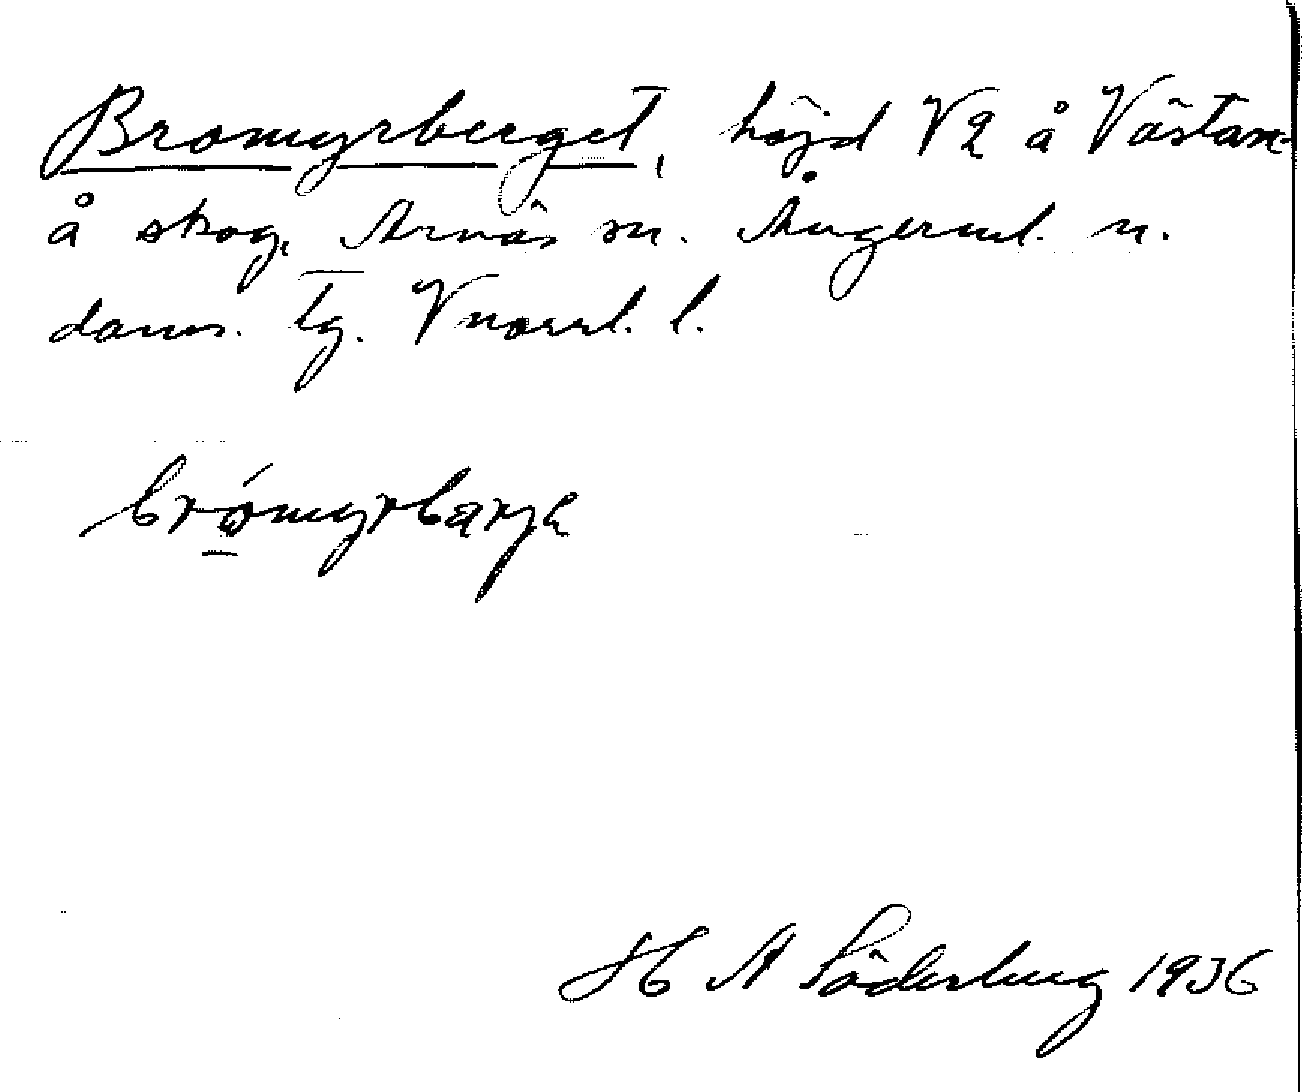 Bromyrberget, höjd V2 å Västan-
å skog, Arnäs sn. Ångerml. n.
doms. lg. Vnorrl. l.
brómyrbarje
H A Söderberg 1936